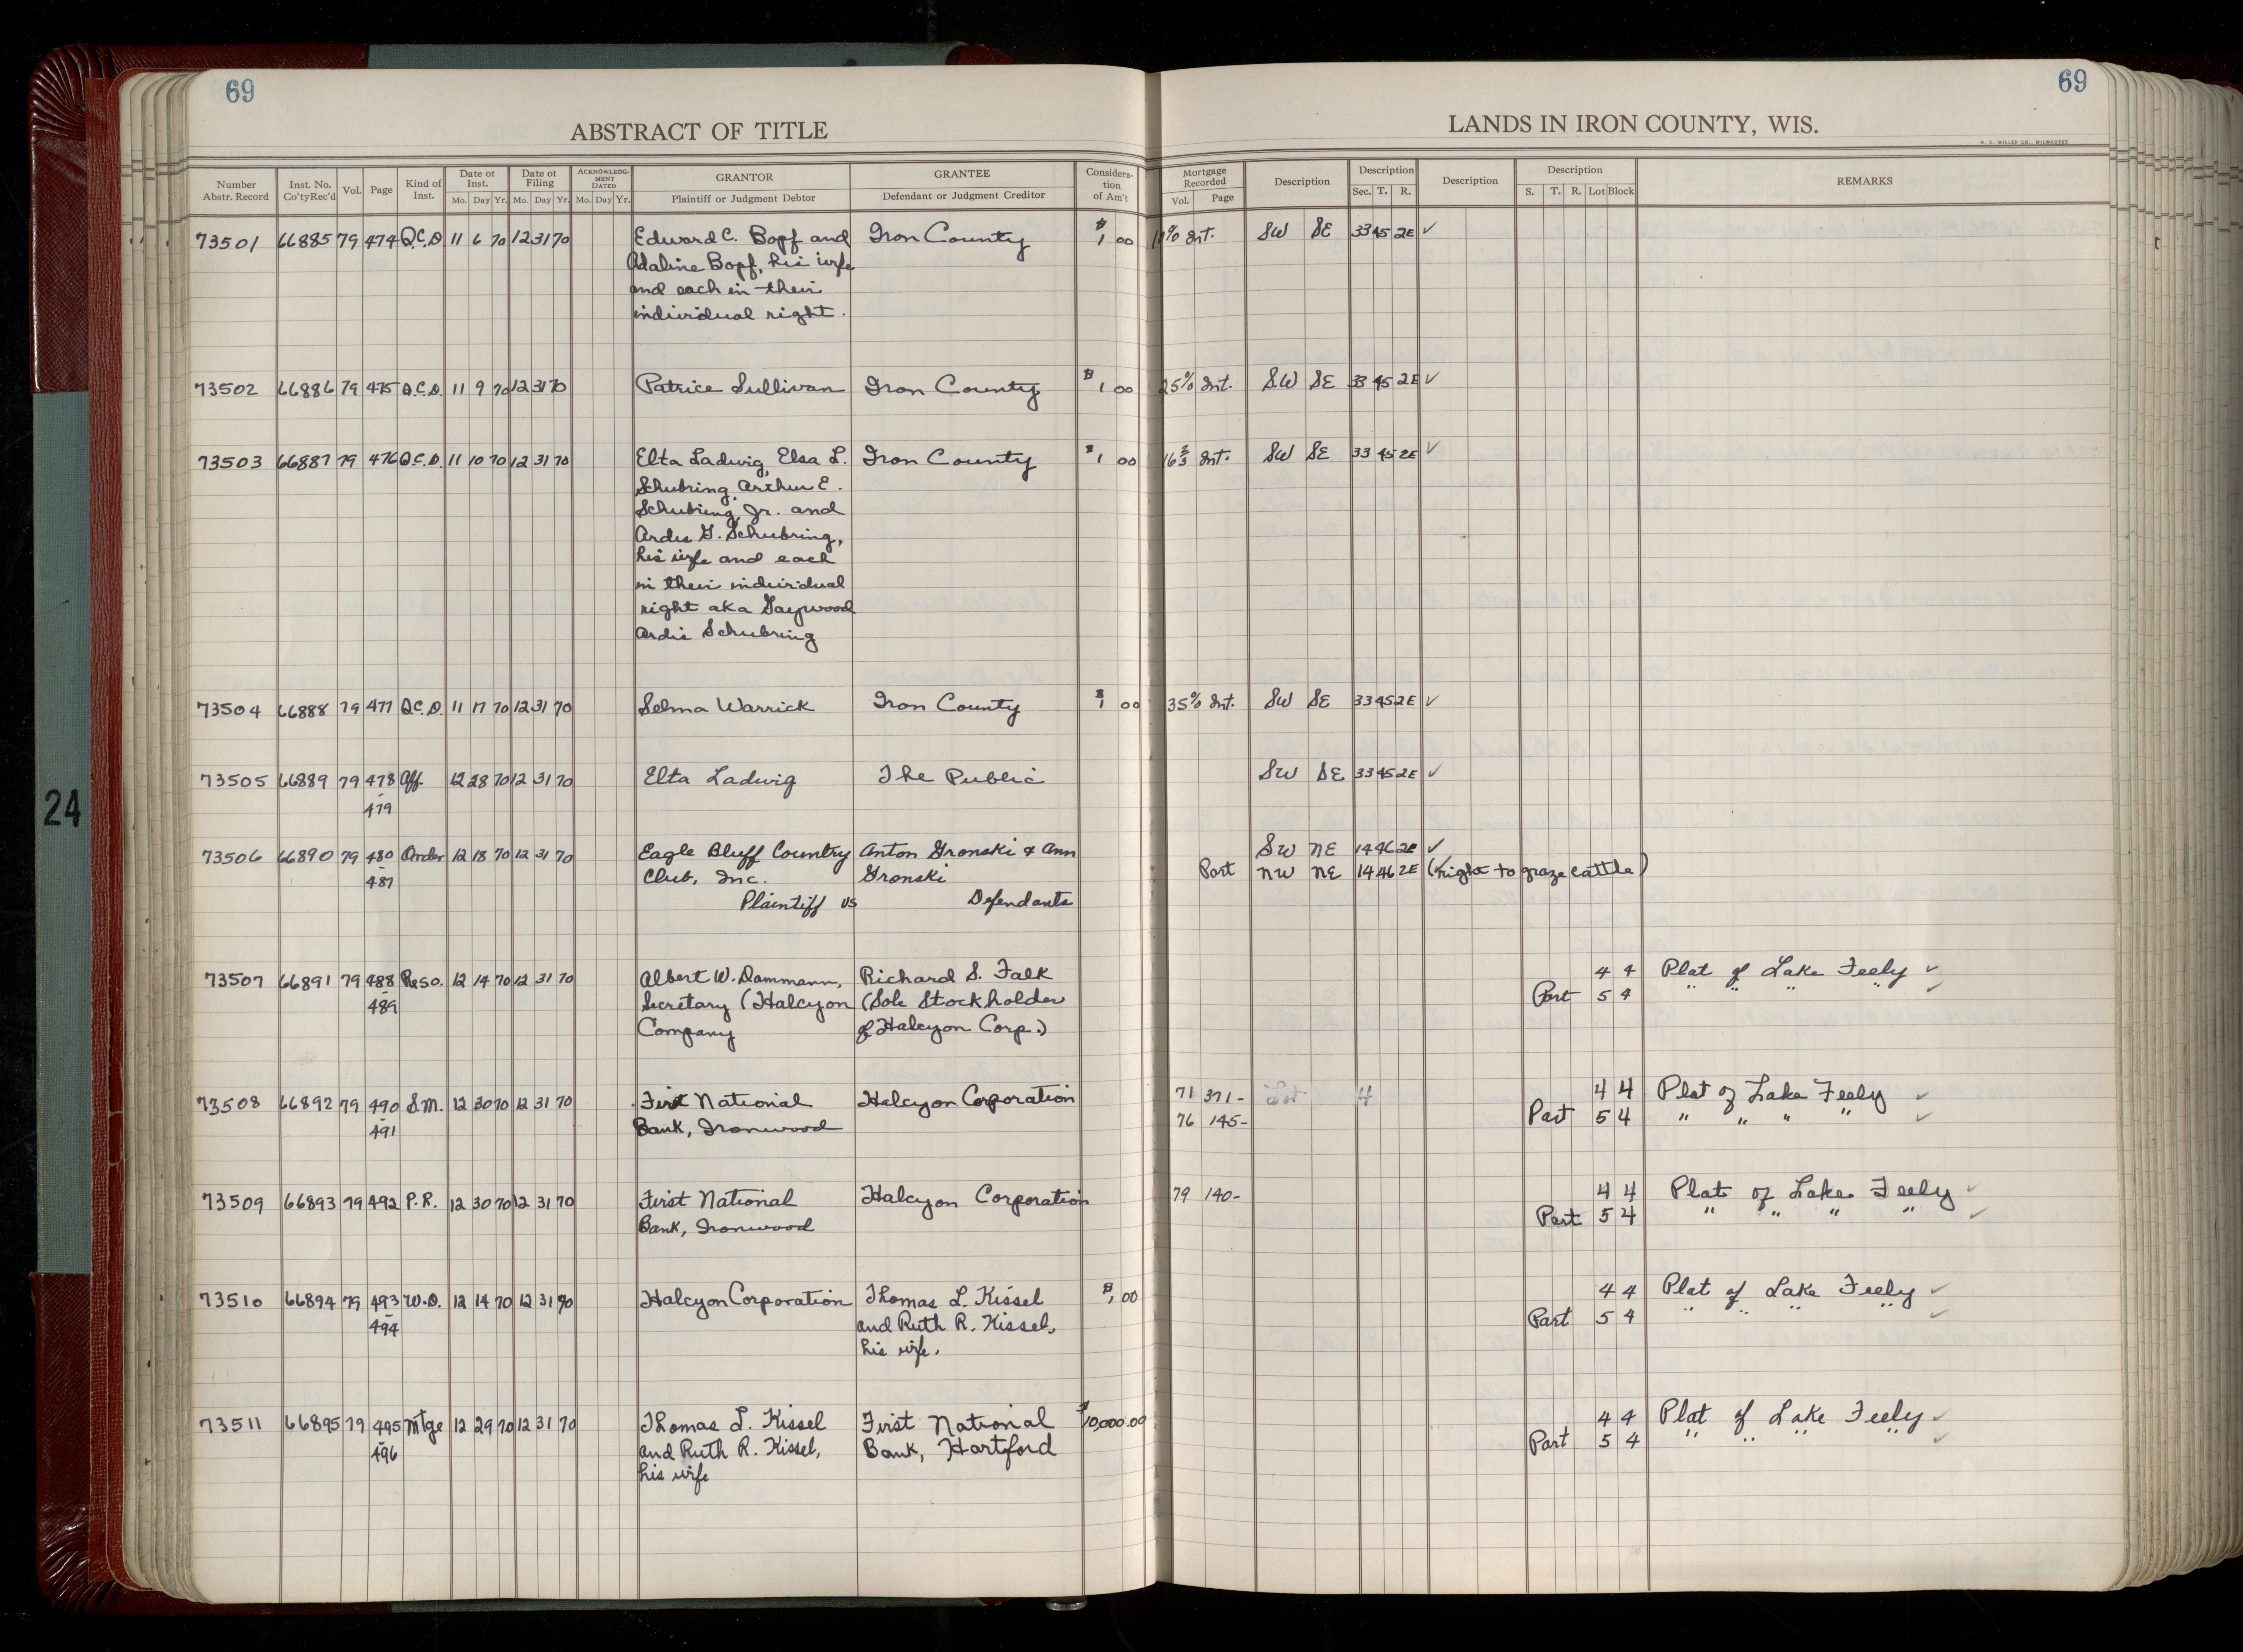 69
69
ABSTRACT OF TITLE
LANDS IN IRON COUNTY, WIS.
H. C. MILLER CO., MILWAUKEE
Number Abstr. Record | Inst. No. Co'ty Rec'd | Vol. | Page | Kind of Inst. | Date of Inst. Mo. Day Yr. | Date of Filing Mo. Day Yr. | ACKNOWLEDG-MENT DATED Mo. Day Yr. | GRANTOR Plaintiff or Judgment Debtor | GRANTEE Defendant or Judgment Creditor | Considera-tion of Am't | Mortgage Recorded Vol. Page | Description | Description Sec. T. R. | Description | Description S. T. R. Lot Block | REMARKS
73501 66885 79 474 Q.C.D 11 6 70 12 31 70 Edward C. Bopf and Iron County $1 00 % Int. SW SE 33 45 2E ✓
Adaline Bopf, his wife
and each in their
individual right.
73502 66886 79 475 Q.C.D. 11 9 70 12 31 70 Patrice Sullivan Iron County $1 00 25% Int. SW SE 33 45 2E ✓
73503 66887 79 476 Q.C.D. 11 10 70 12 31 70 Elta Ladwig, Elsa L. Iron County $1 00 16 2/3 Int. SW SE 33 45 2E ✓
Schubring, Arthur E.
Schubring, Jr. and
Ardis G. Schubring,
his wife and each
in their individual
right aka Gaywood
Ardis Schubring
73504 66888 79 477 Q.C.D. 11 17 70 12 31 70 Selma Warrick Iron County $1 00 35% Int. SW SE 33 45 2E ✓
73505 66889 79 478 Aff. 12 28 70 12 31 70 Elta Ladwig The Public SW SE 33 45 2E ✓
- 479
73506 66890 79 480 Order 12 18 70 12 31 70 Eagle Bluff Country Anton Gronski & Ann SW NE 14 46 2E ✓
- 487 Club, Inc. Gronski Part NW NE 14 46 2E (Right to graze cattle)
Plaintiff vs Defendants
73507 66891 79 488 Reso. 12 14 70 12 31 70 Albert W. Dammann, Richard S. Falk 4 4 Plat of Lake Feely ✓
- 489 Secretary (Halcyon (Sole Stockholder Part 5 4 " " " " ✓
Company of Halcyon Corp.)
73508 66892 79 490 S.M. 12 30 70 12 31 70 First National Halcyon Corporation 71 371- Lot 4 4 4 Plat of Lake Feely ✓
- 491 Bank, Ironwood 76 145- Part 5 4 " " " " ✓
73509 66893 79 492 P.R. 12 30 70 12 31 70 First National Halcyon Corporation 79 140- 4 4 Plat of Lake Feely ✓
Bank, Ironwood Part 5 4 " " " " ✓
73510 66894 79 493 W.D. 12 14 70 12 31 70 Halcyon Corporation Thomas L. Kissel $1 00 4 4 Plat of Lake Feely ✓
- 494 and Ruth R. Kissel, Part 5 4 " " " " ✓
his wife.
73511 66895 79 495 Mtge 12 29 70 12 31 70 Thomas L. Kissel First National $10,000.00 4 4 Plat of Lake Feely ✓
- 496 and Ruth R. Kissel, Bank, Hartford Part 5 4 " " " " ✓
his wife
24